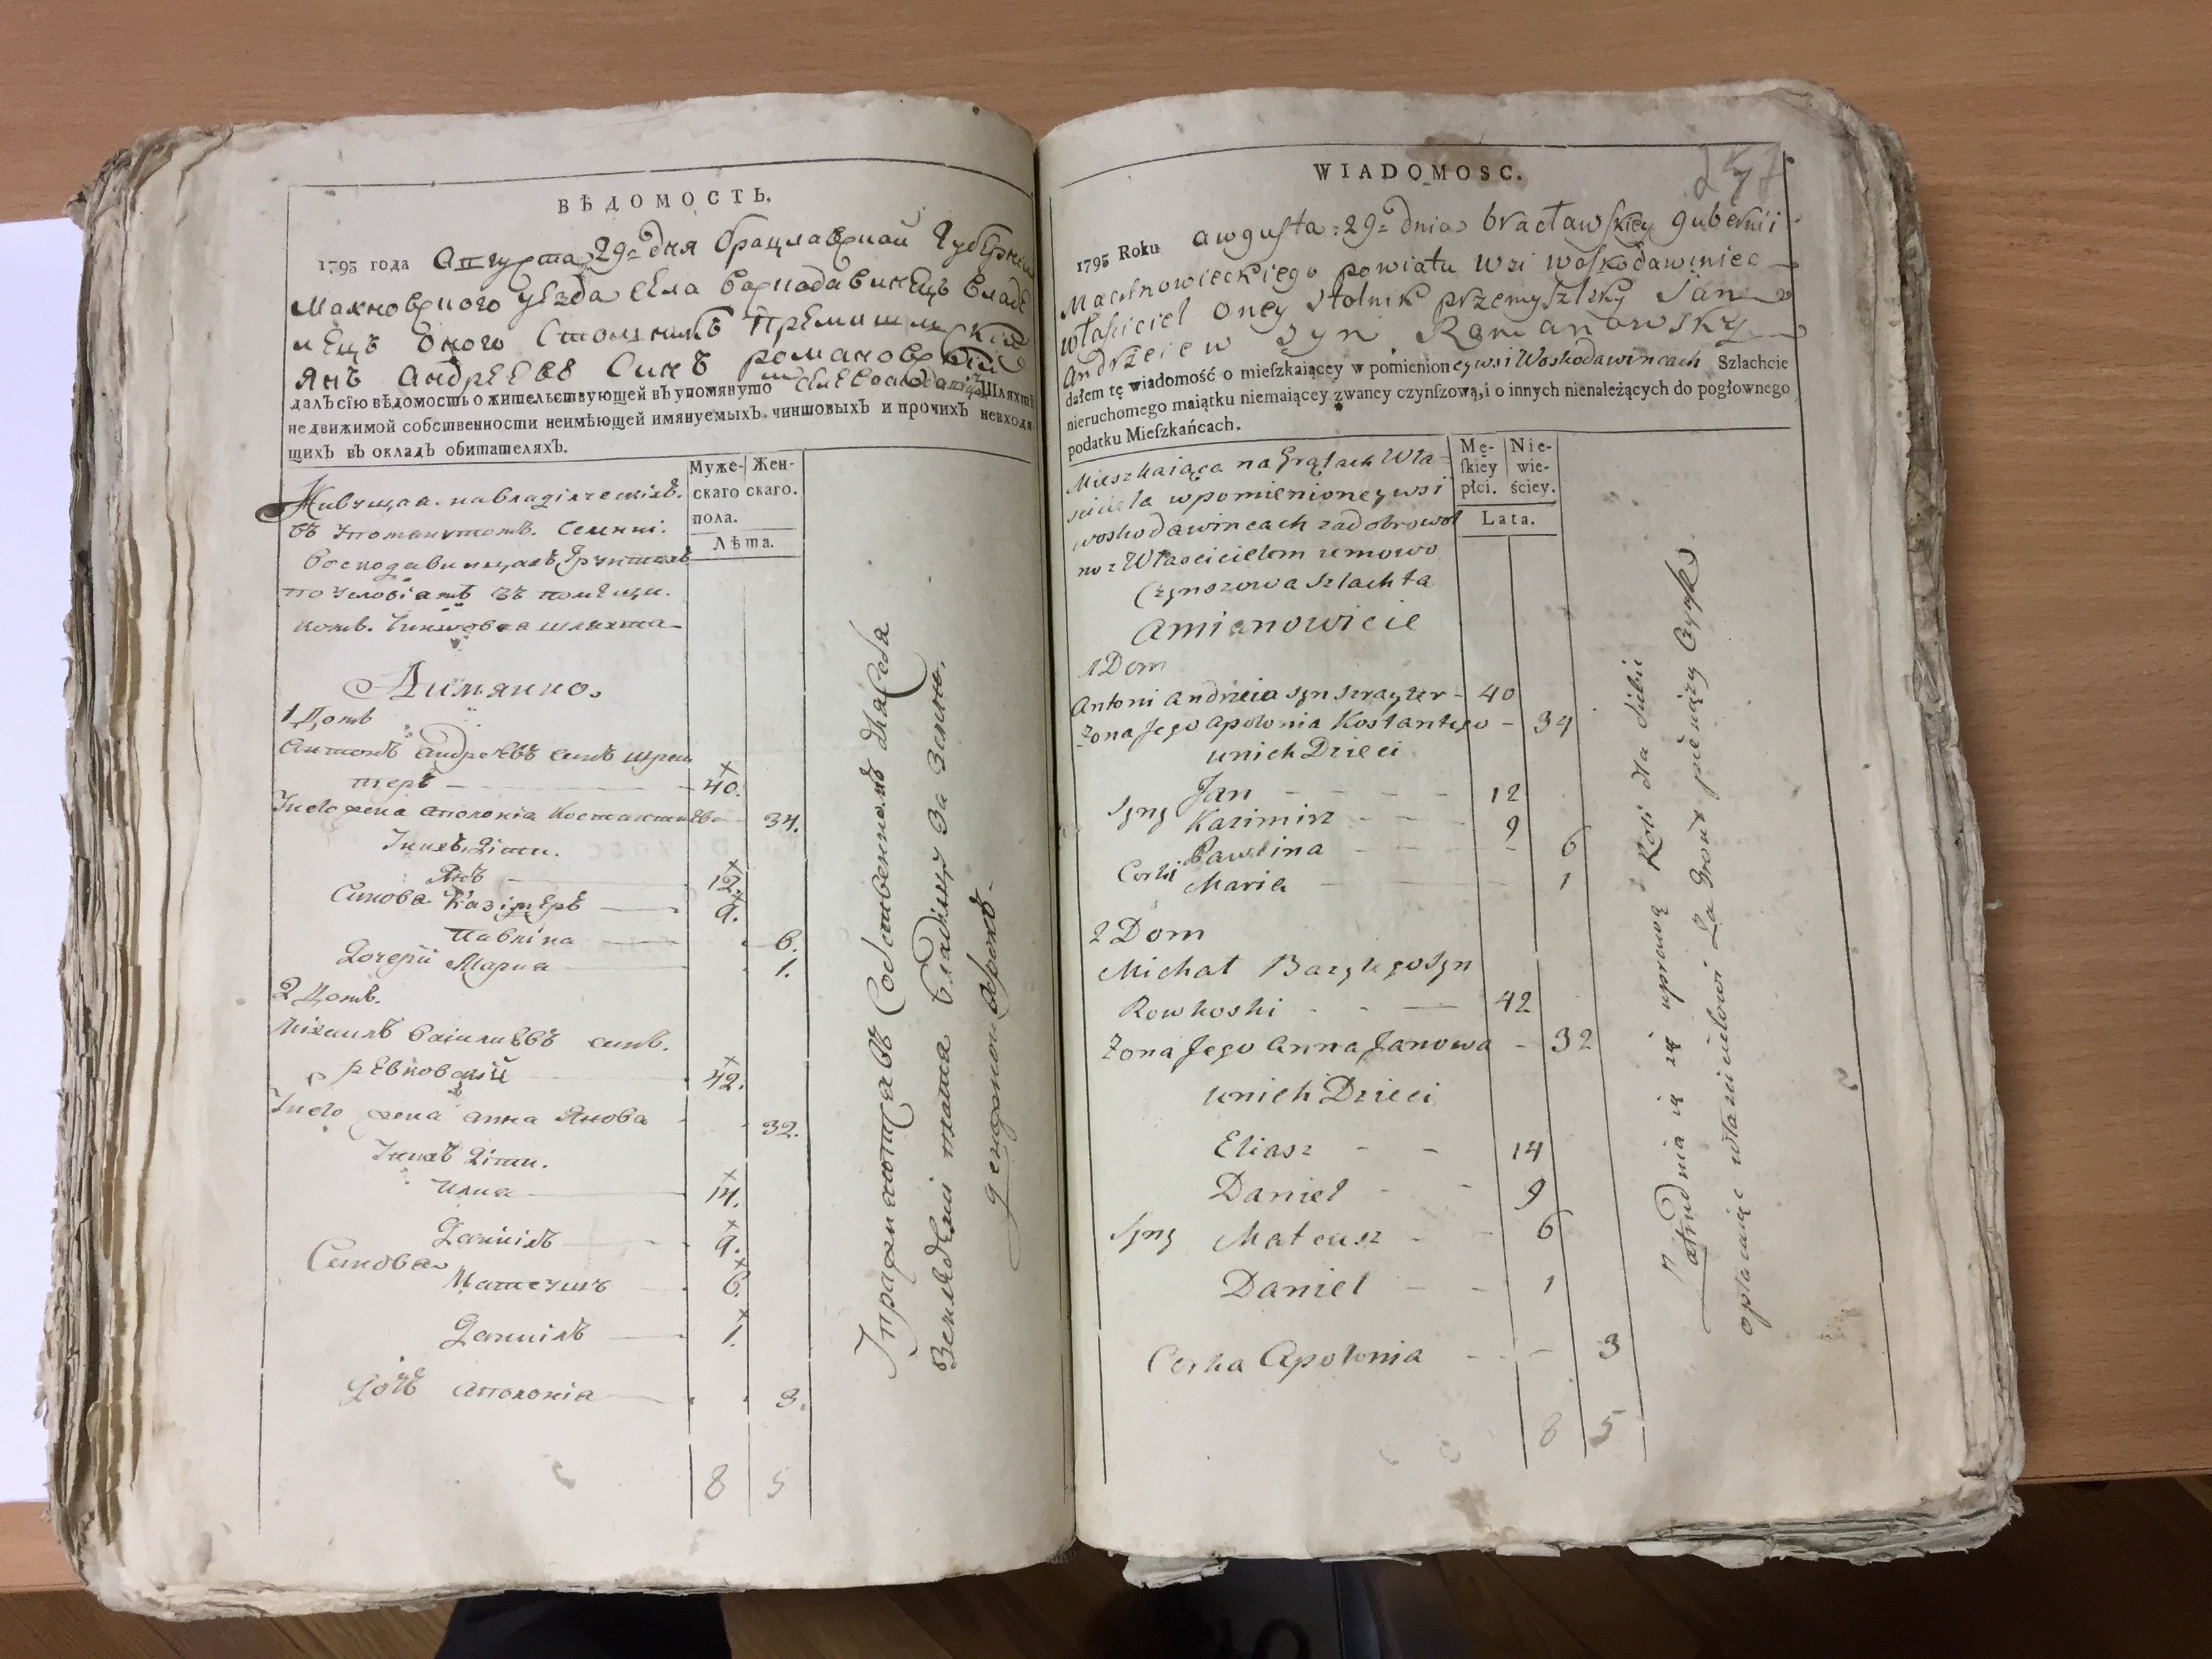 ВѢДОМОСТЬ.
1795 года Августа 29 дня Брацлавской Губернии
Махновского уезда села Воскодавинецъ Владе
лецъ оного Столникъ Премишлский
Янъ Андреевъ Синъ романовский
далъ сїю вѣдомость о жительствующей въ упомянуто Шляхтѣ
недвижимой собственности неимѣющей имянуемыхъ чиншовыхъ и прочихъ невходя
щихъ въ окладъ обитателяхъ.
Муже- Жен-
скаго скаго.
пола.
Лѣта.
Живущая на владѣлческихъ
въ упомянутомъ селенїи
Воскодавинцахъ грунтахъ
по условїамъ съ помѣщи
комъ Чиншовая шляхта
А имянно.
1 Домъ
Антонъ андреевъ синъ шрей
теръ 40.
Его жена аполонїа Костантиева 34.
У нихъ дѣти.
Янъ 12.
Синова Казімеръ 9.
Павліна 6.
Дочери Мариа 1.
2 Домъ.
Міхаилъ Васильевъ синъ.
ревковскїй 42.
Его жена анна Янова 32.
У нихъ дѣти.
Илиа 14.
Данїилъ 9.
Синова
Матеушъ 6.
Данїилъ 1.
Дочь аполонїа 3.
8 5
Упражняютца въ Собственномъ для Себя
Земледелии платя Владѣлцу За Землю
денежной оброкъ.
WIADOMOSC.
247
1795 Roku awgusta 29 dnia bracławskiey gubernii
Machnowieckiego powiatu wsi woskodawiniec
właściciel oney stolnik przemyszlsky Jan
andrzeiew syn Romanowsky
dałem tę wiadomość o mieſzkaiącey w pomienioney wsi Woskodawincach Szlachcie
nieruchomego maiątku niemaiącey zwaney czynſzową, i o innych nienależących do pogłownego
podatku Mieſzkańcach.
Mę- Nie-
ſkiey wie-
płci. ściey.
Lata.
Mieszkaiąca na Grątach Wła-
sciciela w pomienioney wsi
woskodawincach za dobrowol
no z Włascicielem umowo
Czynszowa szlachta
amianowicie
1 Dom
Antoni Andrzeia syn szrayter 40
żona Jego apolonia Kostantego 34
u nich Dzieci
Jan 12
Syny Kazimirz 9
Pawlina 6
Corki Maria 1
2 Dom
Michał Bazylego syn
Rowkoski 42
żona Jego anna Janowa 32
u nich Dzieci
Eliasz 14
Daniel 9
Syny Mateusz 6
Daniel 1
Corka Apolonia 3
8 5
Zatrudnia ią się uprawą Roli dla siebie
opłacaiąc właścicielowi Za Gront pieniężny Czynsz